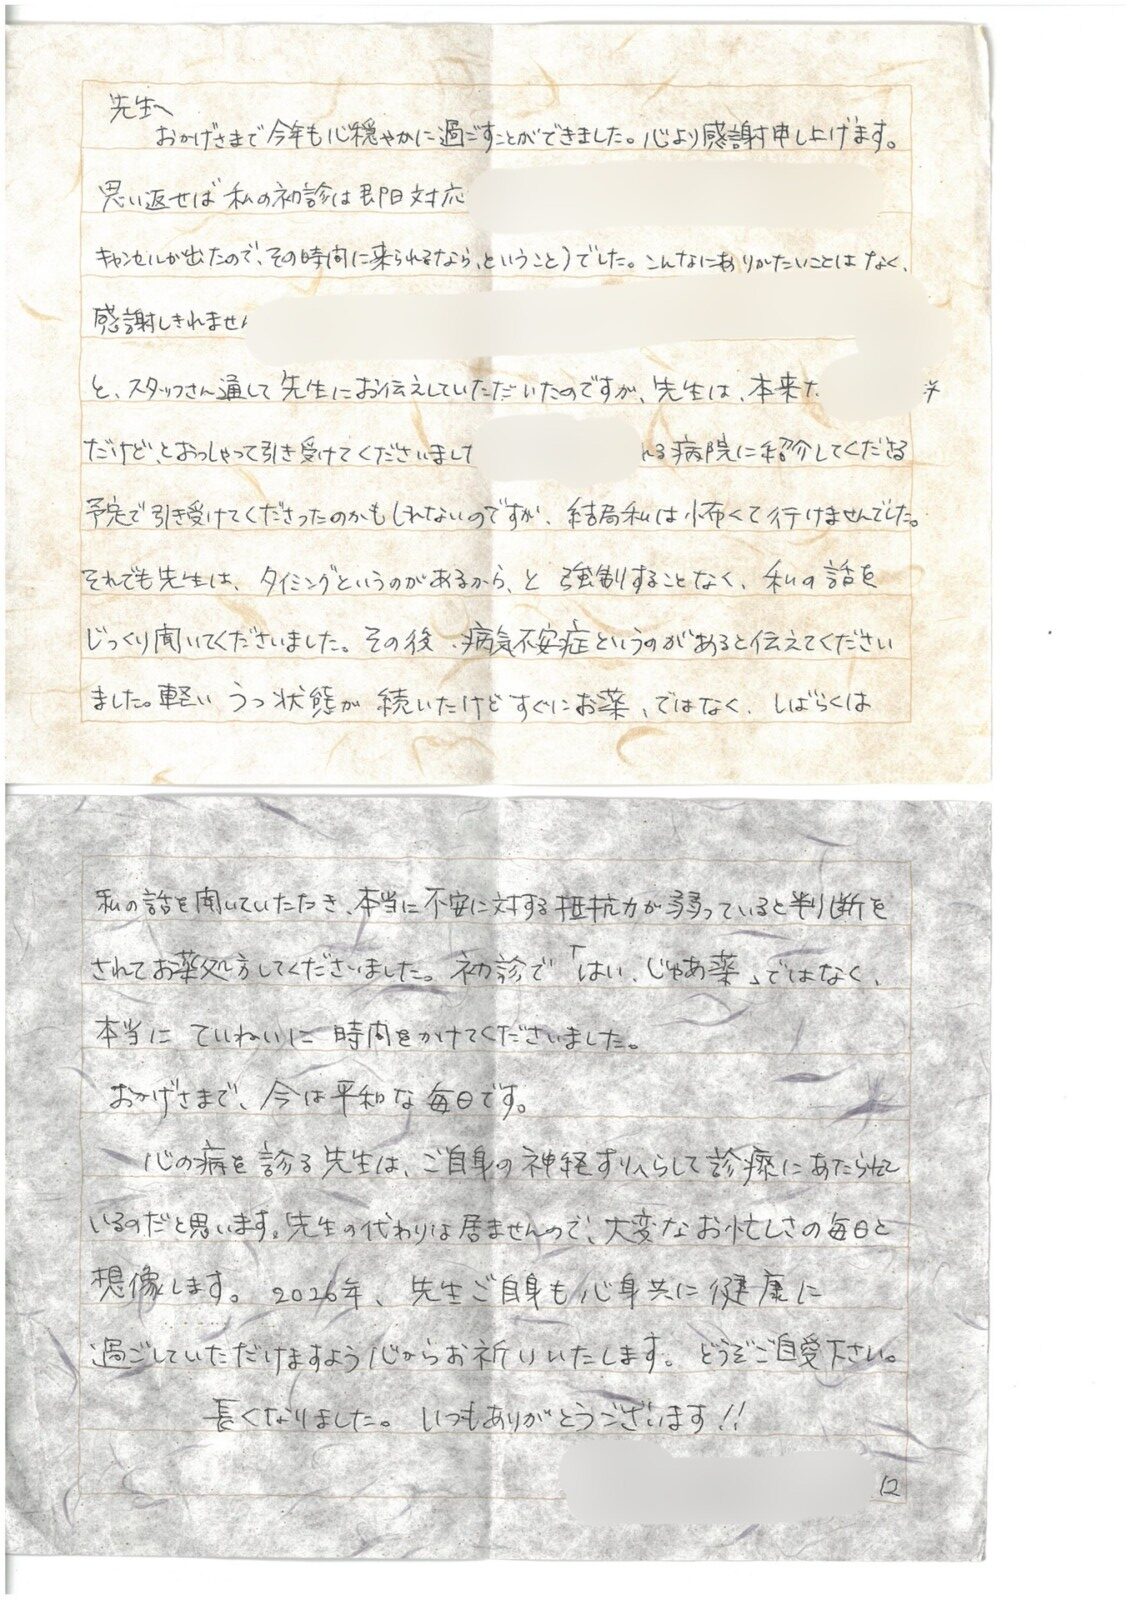 先生へ
おかげさまで今年も心穏やかに過ごすことができました。心より感謝申し上げます。
思い返せば私の初診は即日対応
キャンセルが出たので、その時間に来られるなら、ということ)でした。こんなにありがたいことはなく、
感謝しきれません
と、スタッフさん通して先生にお伝えしていただいたのですが、先生は、本来
だけど、とおっしゃって引き受けてくださいました
れる病院に紹介してくださる
予定で引き受けてくださったのかもしれないのですが、結局私は怖くて行けませんでした。
それでも先生は、タイミングというのがあるから、と強制することなく、私の話を
じっくり聞いてくださいました。その後、病気不安症というのがあると伝えてください
ました。軽いうつ状態が続いたけどすぐにお薬、ではなく、しばらくは
私の話を聞いていただき、本当に不安に対する抵抗力が弱っていると判断を
されてお薬処方してくださいました。初診で「はい、じゃあ薬」ではなく、
本当にていねいに時間をかけてくださいました。
おかげさまで、今は平和な毎日です。
心の病を診る先生は、ご自身の神経すりへらして診療にあたられて
いるのだと思います。先生の代わりは居ませんので、大変なお忙しさの毎日と
想像します。2026年、先生ご自身も心身共に健康に
過ごしていただけますよう心からお祈りいたします。どうぞご自愛下さい。
長くなりました。いつもありがとうございます!!
12